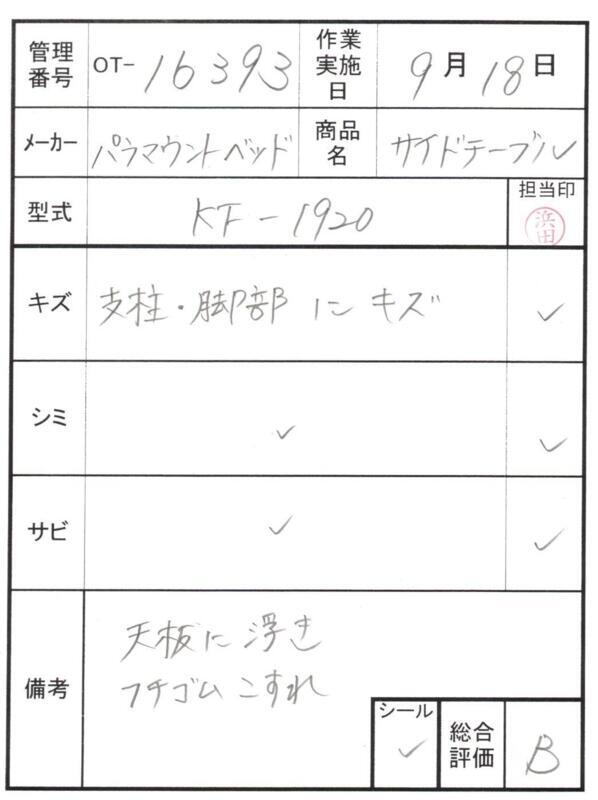 管理番号 OT-16393 作業実施日 9月18日
メーカー パラマウントベッド 商品名 サイドテーブル
型式 KF-1920 担当印 浜田
キズ 支柱・脚部にキズ ✓
シミ ✓ ✓
サビ ✓ ✓
備考 天板に浮き
フチゴムこすれ
シール ✓ 総合評価 B